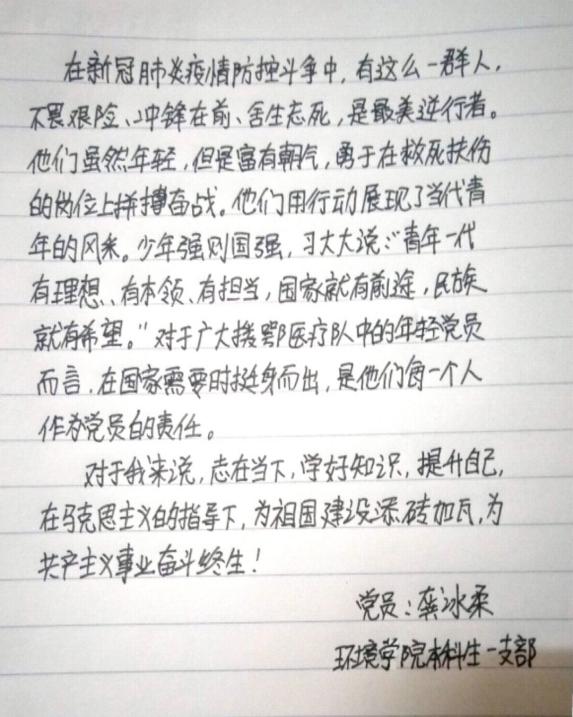 在新冠肺炎疫情防控斗争中,有这么一群人,
不畏艰险、冲锋在前、舍生忘死,是最美逆行者。
他们虽然年轻,但是富有朝气,勇于在救死扶伤
的岗位上拼搏奋战。他们用行动展现了当代青
年的风采。少年强则国强,习大大说:“青年一代
有理想、有本领、有担当,国家就有前途,民族
就有希望。”对于广大援鄂医疗队中的年轻党员
而言,在国家需要时挺身而出,是他们每一个人
作为党员的责任。
对于我来说,志在当下,学好知识,提升自己,
在马克思主义的指导下,为祖国建设添砖加瓦,为
共产主义事业奋斗终生!
党员:龚冰柔
环境学院本科生一支部